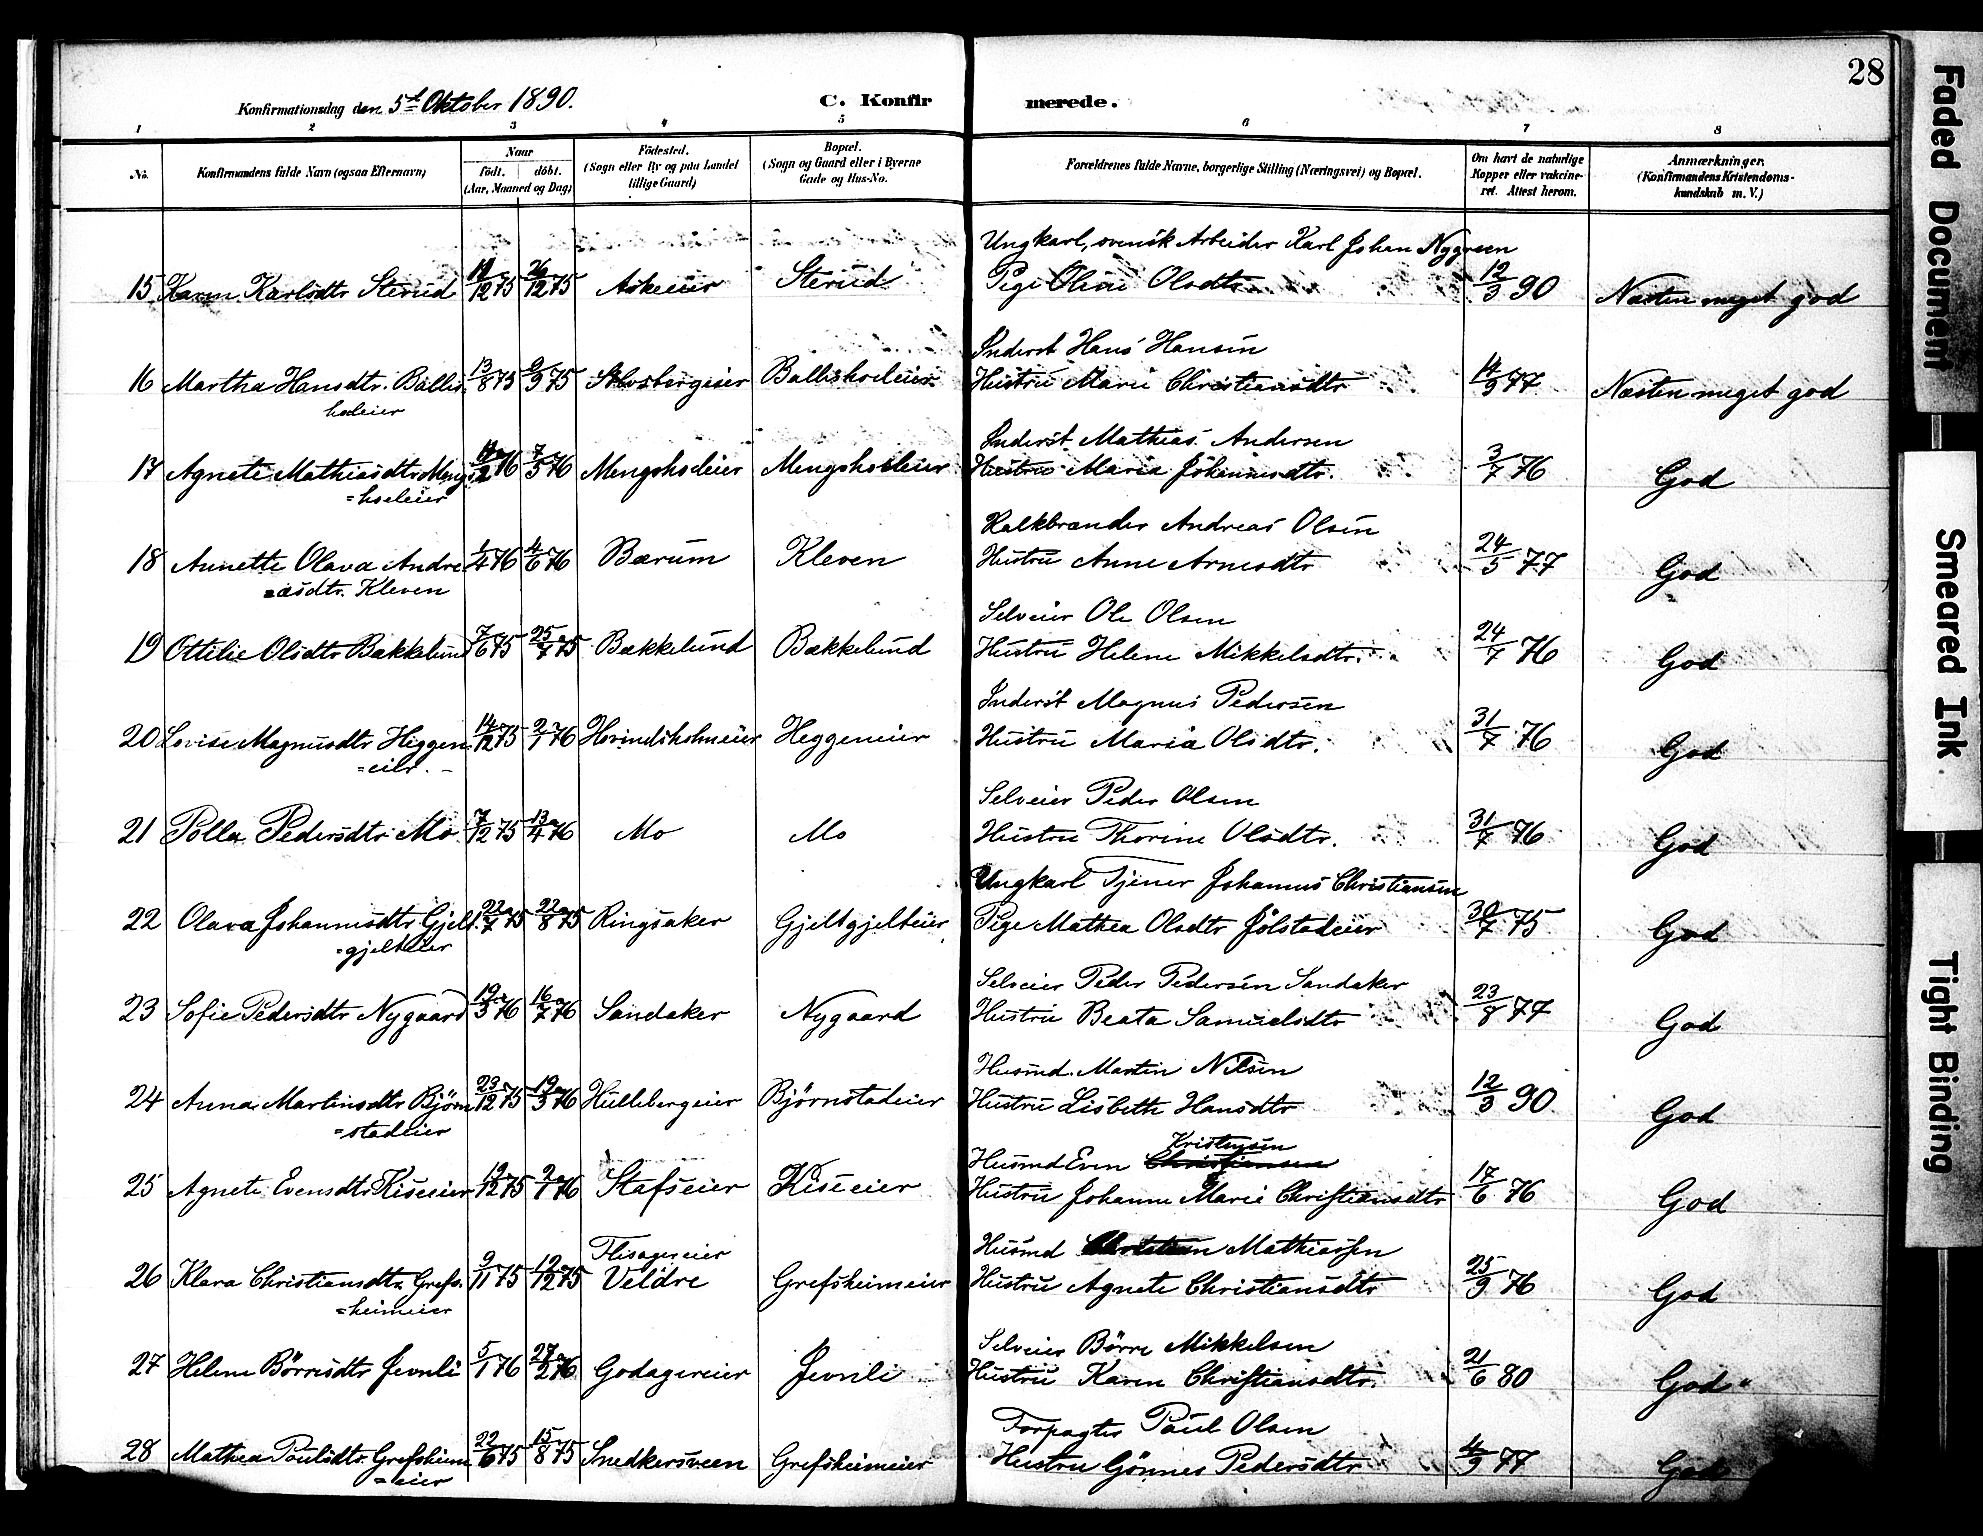 28
Konfirmationsdag den 5te Oktober 1890. C. Konfirmerede.
1 2 3 4 5 6 7 8
No. Konfirmandens fulde Navn (ogsaa Efternavn) Naar født. døbt. (Aar, Maaned og Dag) Fødested. (Sogn eller By og paa Landet tillige Gaard) Bopæl. (Sogn og Gaard eller i Byerne Gade og Hus-No. Forældrenes fulde Navne, borgerlige Stilling (Næringsvei) og Bopæl. Om havt de naturlige Kopper eller vakcineret. Attest herom. Anmærkninger. (Konfirmandens Kristendomskundskab m. V.)
Ungkarl, svensk Arbeider Karl Johan Nygreen
15 Karen Karlsdtr Sterud 12/75 26/12 75 Askeeier Sterud Pige Oline Olsdtr 12/3 90 Næsten meget god
Inderst Hans Hansen
16 Martha Hansdtr. Ballis 13/8 75 9/9 75 Stavsbergeier Ballisholeier Hustru Marie Christiansdtr 14/9 77 Næsten meget god
holeier
Inderst Mathias Andersen
17 Agnete Mathiasdtr Mengs 2 76 7/5 76 Mengsholeier Mengsholeier Hustru Maria Johannesdtr. 3/7 76 God
=holeier
Kalkbrænder Andreas Olsen
18 Annette Olava Andre 1/4 76 4/6 76 Bærum Kleven Hustru Anne Arnesdtr 24/5 77 God
=asdtr. Kleven
Selveier Ole Olsen
19 Ottilie Olsdtr Bækkelund 7/6 75 25/7 75 Bækkelund Bækkelund Hustru Helene Mikkelsdtr. 24/7 76 God
Inderst Magnus Pedersen
20 Lovise Magnusdtr Heggen 14/12 75 2/1 76 Hovindsholmeier Heggeneier Hustru Maria Olsdtr. 31/7 76 God
=eier.
Selveier Peder Olsen
21 Polla Pedersdtr Mo 7/12 75 13/4 76 Mo Mo Hustru Thorine Olsdtr. 31/7 76 God
Ungkarl Tjener Johannes Christiansen
22 Olava Johannesdtr Gjelt 22/7 75 22/8 75 Ringsaker Gjeltgjelteier Pige Mathea Olsdtr Jølstadeier 30/7 75 God
=gjelteier
Selveier Peder Pedersen Sandaker
23 Sofie Pedersdtr Nygaard 19/3 76 16/7 76 Sandaker Nygaard Hustru Beata Samuelsdtr 23/8 77 God
Husmd. Martin Nilsen
24 Anna Martinsdtr Bjørn 23/12 75 19/3 76 Hullebergeier Bjørnstadeier Hustru Lisbeth Hansdtr 12/3 90 God
=stadeier
Kristensen
Husmd Even Christiansen
25 Agnete Evensdtr Kiseeier 19/12 75 2/1 76 Stafseier Kiseeier Hustru Johanne Marie Christiansdtr 17/6 76 God
Flisagereier Husmd Christian Mathiassen
26 Klara Christiansdtr. Grefs 9/11 75 19/12 75 Veldre Grefsheimeier Hustru Agnete Christiansdtr 25/9 76 God
=heimeier
Selveier Børre Mikkelsen
27 Helene Børresdtr Jevnli 5/1 76 27/2 76 Godagereier Jevnli Hustru Karen Christiansdtr. 21/6 80 God
Forpagter Paul Olsen
28 Mathea Paulsdtr. Grefsheim 22/6 75 15/8 75 Snedkersveen Grefsheimeier Hustru Gønner Pedersdtr 4/9 77 God
=eier
Faded Document
Smeared Ink
Tight Binding